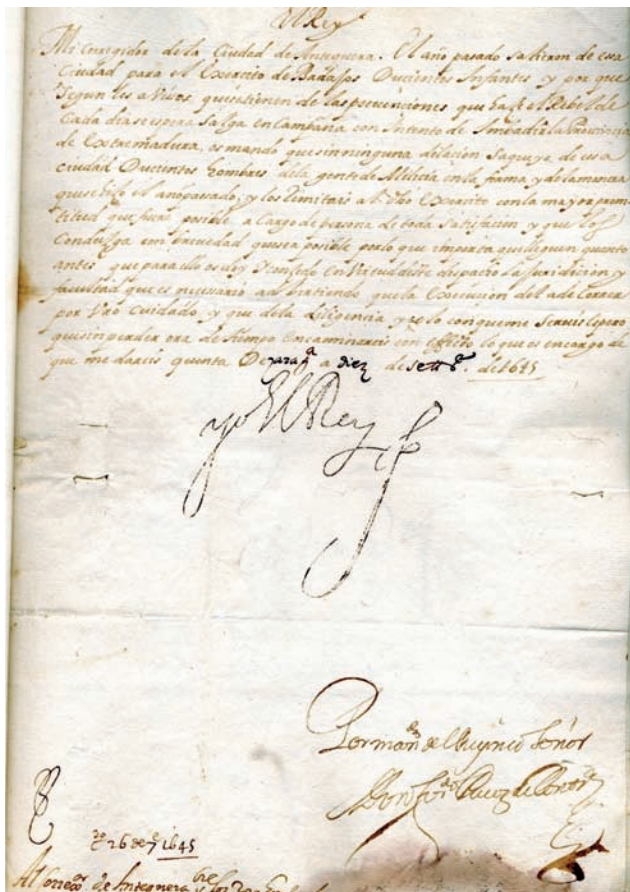 El Rey
Mi Corregidor de la Ciudad de Antequera. El año pasado salieron de esa
Ciudad para el Exercito de Badajos Ducientos Infantes y por que
segun los avisos que se tienen de las prevenciones que haze el Rebelde
Cada dia se espera salga en Campaña con Intento de Imbadir la Provincia
de Extremadura, os mando que sin ninguna dilacion saqueys de esa
ciudad Ducientos hombres de la gente de Milicia en la forma y de la manera
que se hiço el año pasado, y los remitais al dho Exercito con la mayor prom
titud que fuere posible a Cargo de persona de toda satisfacion y que los
Conduzga con brevedad que sea posible por lo que importa que lleguen quanto
antes que para ello os doy y concedo en Virtud deste despacho la Juridicion y
facultad que es necessario advirtiendo que la Execucion del a de Correr
por Vro Cuidado, y que de la diligencia y zelo con que me servis espero
que sin perder ora de tiempo encaminareis con efecto lo que os encargo de
que me dareis quenta De Zarag^a a diez de sett^e. de 1645
yo El Rey
Por man^do del Rey nro Señor
Don
26 de 7^e 1645
Al Correg^or de Antequera